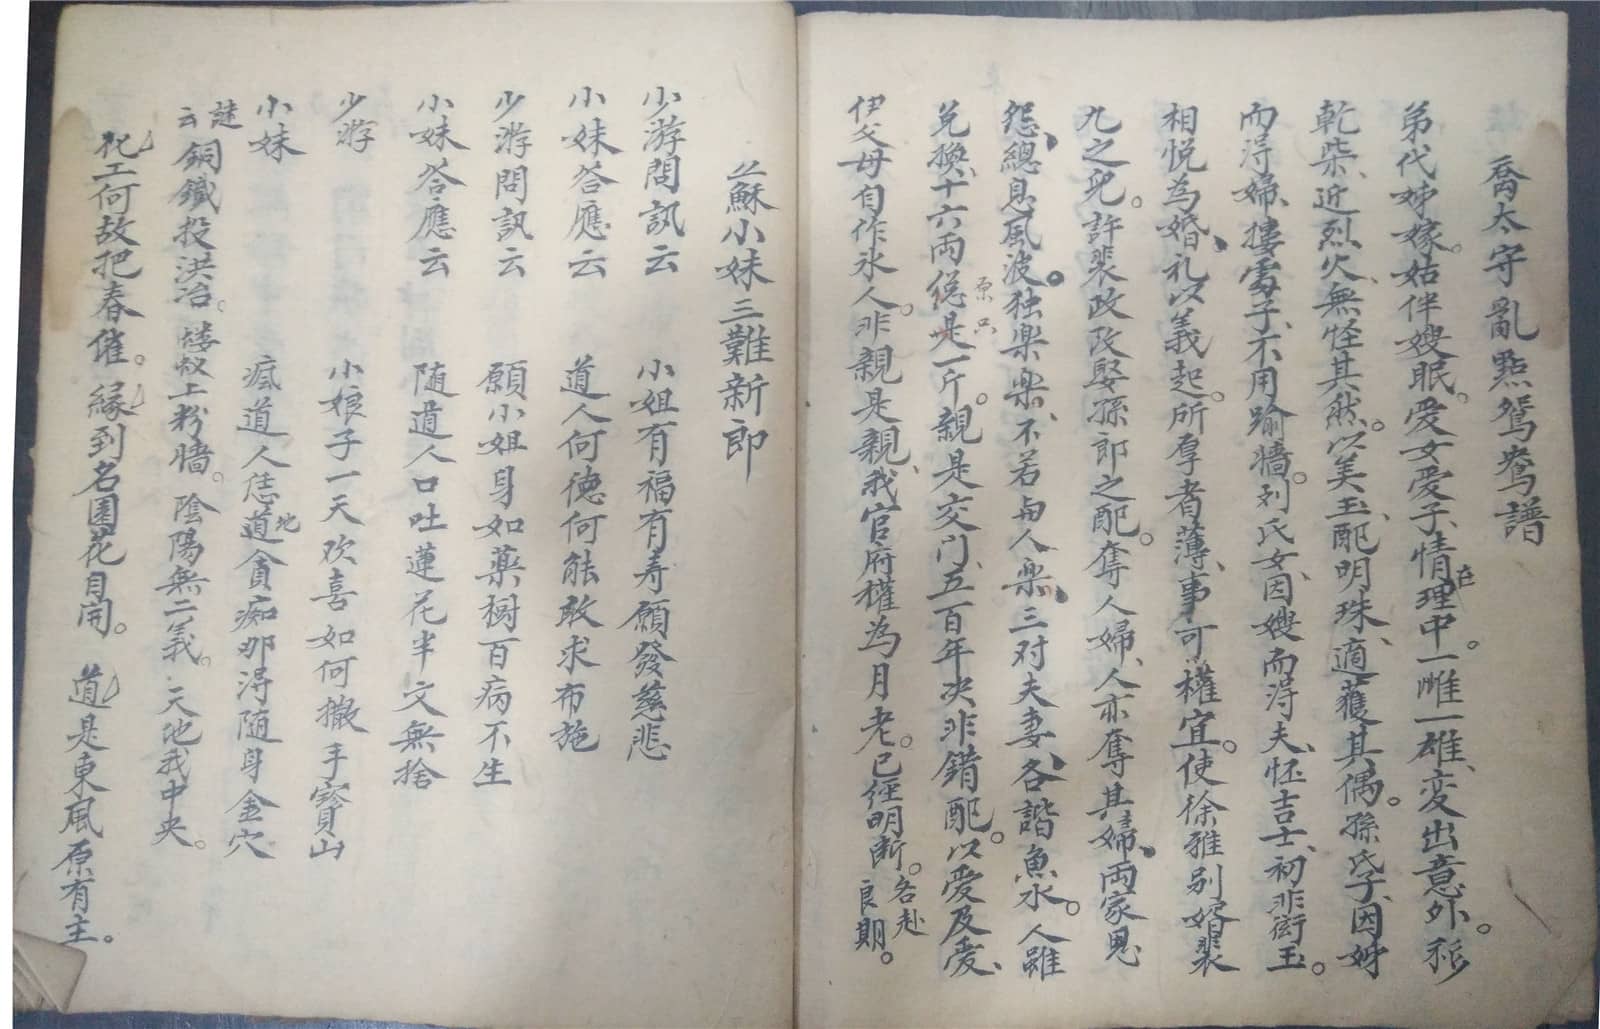 喬太守亂點鴛鴦譜
弟代姊嫁。姑伴嫂眠。愛女愛子、情在理中。一雌一雄、变出意外。移
乾柴、近烈火、無怪其然。以美玉、配明珠、適獲其偶。孫氏子、因姊
而得婦、摟處子、不用踰墻。刘氏女、因嫂而得夫、怀吉士、初非衒玉。
相悦為婚、礼以義起。所厚者薄、事可權宜。使徐雅别婿裴
九之兒。許裴政改娶孫郎之配。奪人婦、人亦奪其婦、両家恩
怨、總息風波。独楽楽、不若与人楽、三对夫妻、各諧魚水。人雖
兑換、十六両縂是一斤。親是交门、五百年决非錯配。以愛及愛、
原只
伊父母自作氷人。非親是親、我官府權為月老。已經明断。各赴良期。
蘇小妹三難新郎
少游問訊云 小姐有福有寿願發慈悲
小妹答應云 道人何德何能敢求布施
少游問訊云 願小姐身如藥樹百病不生
小妹答應云 随道人口吐蓮花半文無捨
少游 小娘子一天欢喜如何撒手寳山
小妹 瘋道人恁地貪痴那得随身金穴
謎云 銅鐵投洪冶。螻蚁上粉墻。陰陽無二義。天地我中央。
化工何故把春催。緣到名園花自開。道是東風原有主。